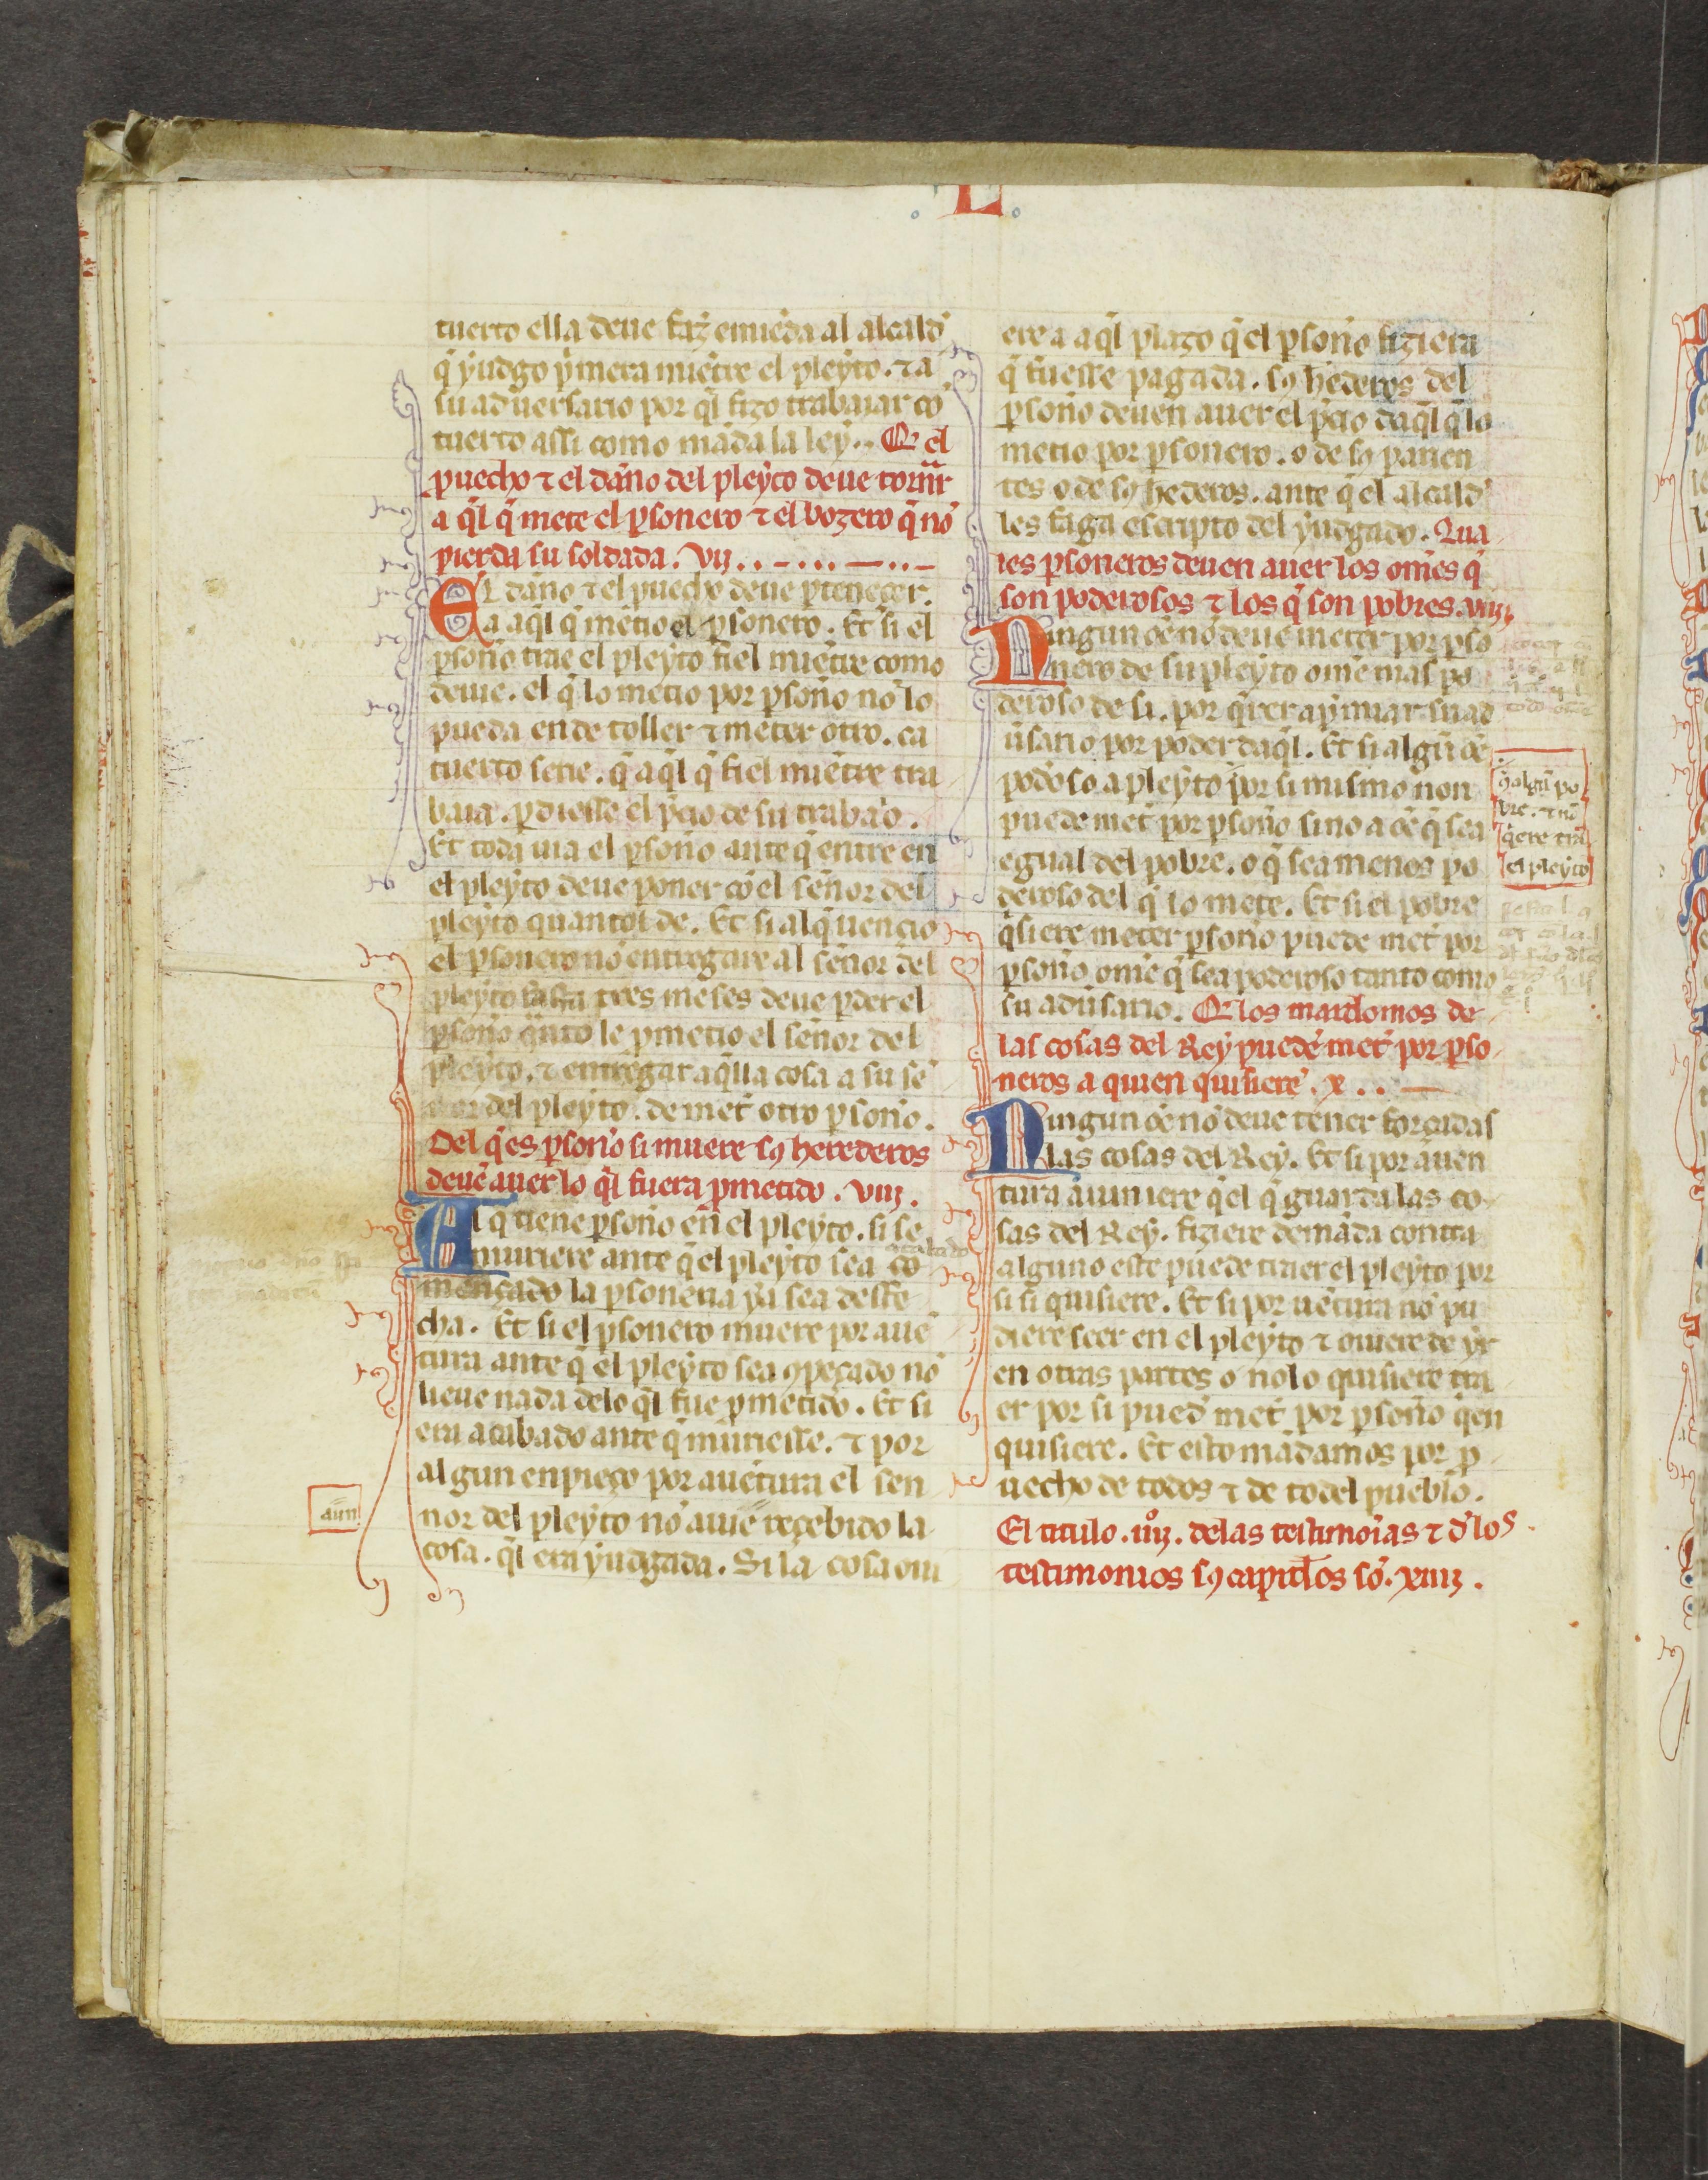 L
tuerto ella deue faz̃ emiẽda al alcald̾
q̃ yudgo p̾mera miẽtre el pleyto. ⁊ a
su aduersario por q̃l fizo trabaiar cõ
tuerto assi como mãda la ley.. Q̃ el
ꝓuecho ⁊ el dãno del pleyto deue tornar̃
a q̃l q̃ mete el ꝑsonero ⁊ el bozero q̃ nõ
pierda su soldada. vij..-...—..-
El dãno ⁊ el ꝓuecho deue ꝑteneçer.
a aq̃l q̃ metio el ꝑsonero. Et si el
ꝑsoñ̃o trae el pleyto fiel miẽtre como
deue. el q̃ lo metio por ꝑsoño nõ lo
pueda ende toller ⁊ meter otro. ca
tuerto serie. q̃ aq̃l q̃ fiel miẽtre tra
baia. ꝑdiesse el p̾cio de su trabaio.
Et toda uia el ꝑsoño ante q̃ entre en
el pleyto deue poner cõ el señor del
pleyto quantol de. Et si al q̃ uencio
el ꝑsonero nõ entregare al señor del
pleyto fasta tres meses deue ꝑder el
ꝑsoño q̃nto le ꝓmetio el señor del
pleyto. ⁊ entregar aq̃lla cosa a su se
del pleyto. de met̾ otro ꝑsoño.
Del q̃ es ꝑsoño si muere sꝯ herederos
deuẽ auer lo q̃l fuera ꝓmetido. viij.
Al q̃ tiene ꝑsoño en el pleyto. si se
muriere ante q̃ el pleyto sea cõ
mençado la ꝑsoneria ya sea desfe
cha. Et si el ꝑsonero muere por auẽ
tura ante q̃ el pleyto sea ꝯpeçado nõ
lieue nada delo q̃l fue ꝓmetido. Et si
era acabado ante q̃ muriesse. ⁊ por
algun enpieço por auẽtura el sen
nor del pleyto nõ auie reçebido la
aun
cosa. q̃l era yudgada. Si la cosa oui
ere a aq̃l plazo q̃ el ꝑsoño fiziera
q̃ fuesse pagada. sꝯ hederos del
ꝑsoño deuen auer el p̾cio daq̃l q̃ lo
metio por ꝑsonero. o de sꝯ parien
tes o de sꝯ hederos. ante q̃ el alcald̾
les faga escripto del yudgado. Qua
les ꝑsoneros deuen auer los omẽs q̃
son poderosos ⁊ los q̃ son pobres. viiij.
Ningun õe nõ deue meter por ꝑso
nero de su pleyto ome mas po
deroso de si. por q̃rer apmiar su ad
ũsario por poder daq̃l. Et si algũ õe
podõso a pleyto por si mismo non
puede met̾ por ꝑsoño sino a õe q̃ sea
ꝯ algũ po
bre. ⁊ nõ
q̃ere tra
el pleyto
egual del pobre. o q̃ sea menos po
deroso del q̃ lo mete. Et si el pobre
q̃siere meter ꝑsoño puede met̾ por
ꝑsoño ome q̃ sea poderoso tanto como
su adũsario. Q̃ los maiordomos de
las cosas del Rey puedẽ met̾ por ꝑso
neros a quien quisierẽ. x..—
Ningun õe nõ deue tener forçadas
las cosas del Rey. Et si por auen
tura auiniere q̃ el q̃ guarda las co
sas del Rey. fiziere demãda contra
alguno este puede traer el pleyto por
si si quisiere. Et si por uẽtura nõ pu
diere seer en el pleyto ⁊ ouiere de yr
en otras partes o no lo quisiere tra
er por si pued̾ met̾ por ꝑsoño q̃en
quisiere. Et esto mãdamos por ꝓ
uecho de todos ⁊ de todel pueblo.
El titulo. iiij. delas testimoñias ⁊ d̾ los
testimonios sꝯ capitɫos sõ. xiiij.